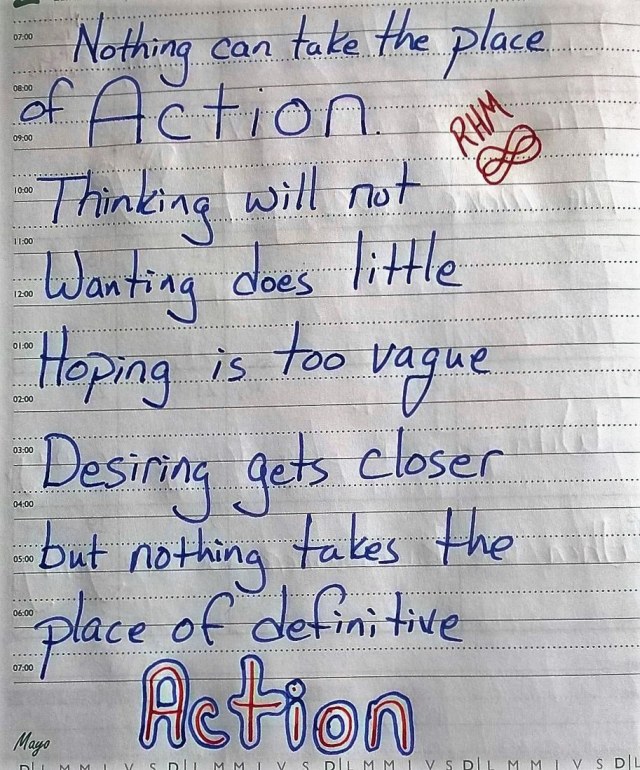 07:00 Nothing can take the place
08:00 of Action.
RHM
09:00
10:00 Thinking will not
11:00
12:00 Wanting does little
01:00 Hoping is too vague
02:00
03:00 Desiring gets closer
04:00
05:00 but nothing takes the
06:00 place of definitive
07:00
Action
Mayo
D L M M J V S D L M M J V S D L M M J V S D L M M J V S D L